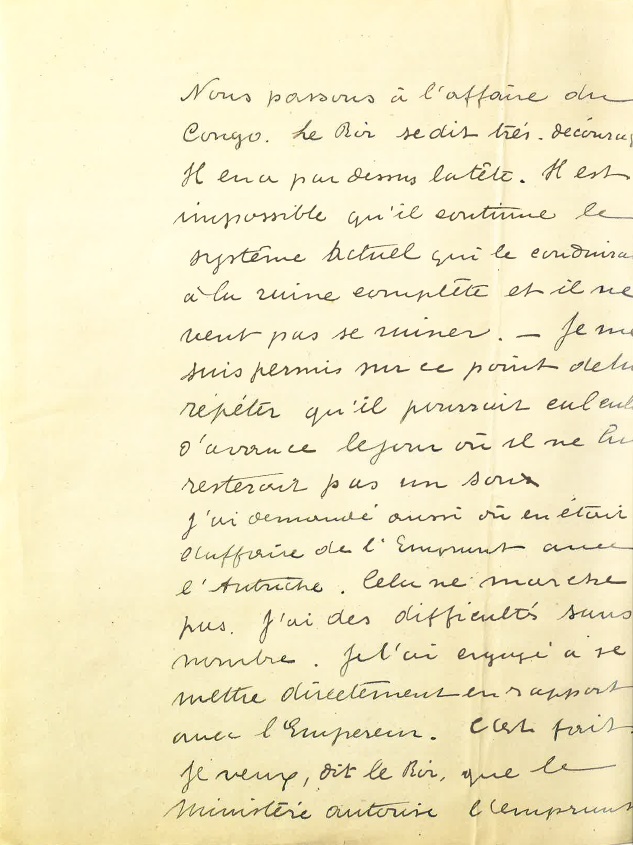 Nous passons à l'affaire du
Congo. Le Roi se dit très-décourag
Il en a par dessus la tête. Il est
impossible qu'il continue le
système actuel qui le conduira
à la ruine complète et il ne
veut pas se ruiner. — Je me
suis permis sur ce point de lu
répéter qu'il pourrait calcul
d'avance le jour où il ne lui
resterait pas un sou
J'ai demandé aussi où en était
l'affaire de l'Emprunt avec
l'Autriche. Cela ne marche
pas. J'ai des difficultés sans
nombre. Je l'ai engagé à se
mettre directement en rapport
avec l'Empereur. C'est fait.
Je veux, dit le Roi, que le
Ministère autorise l'emprunt